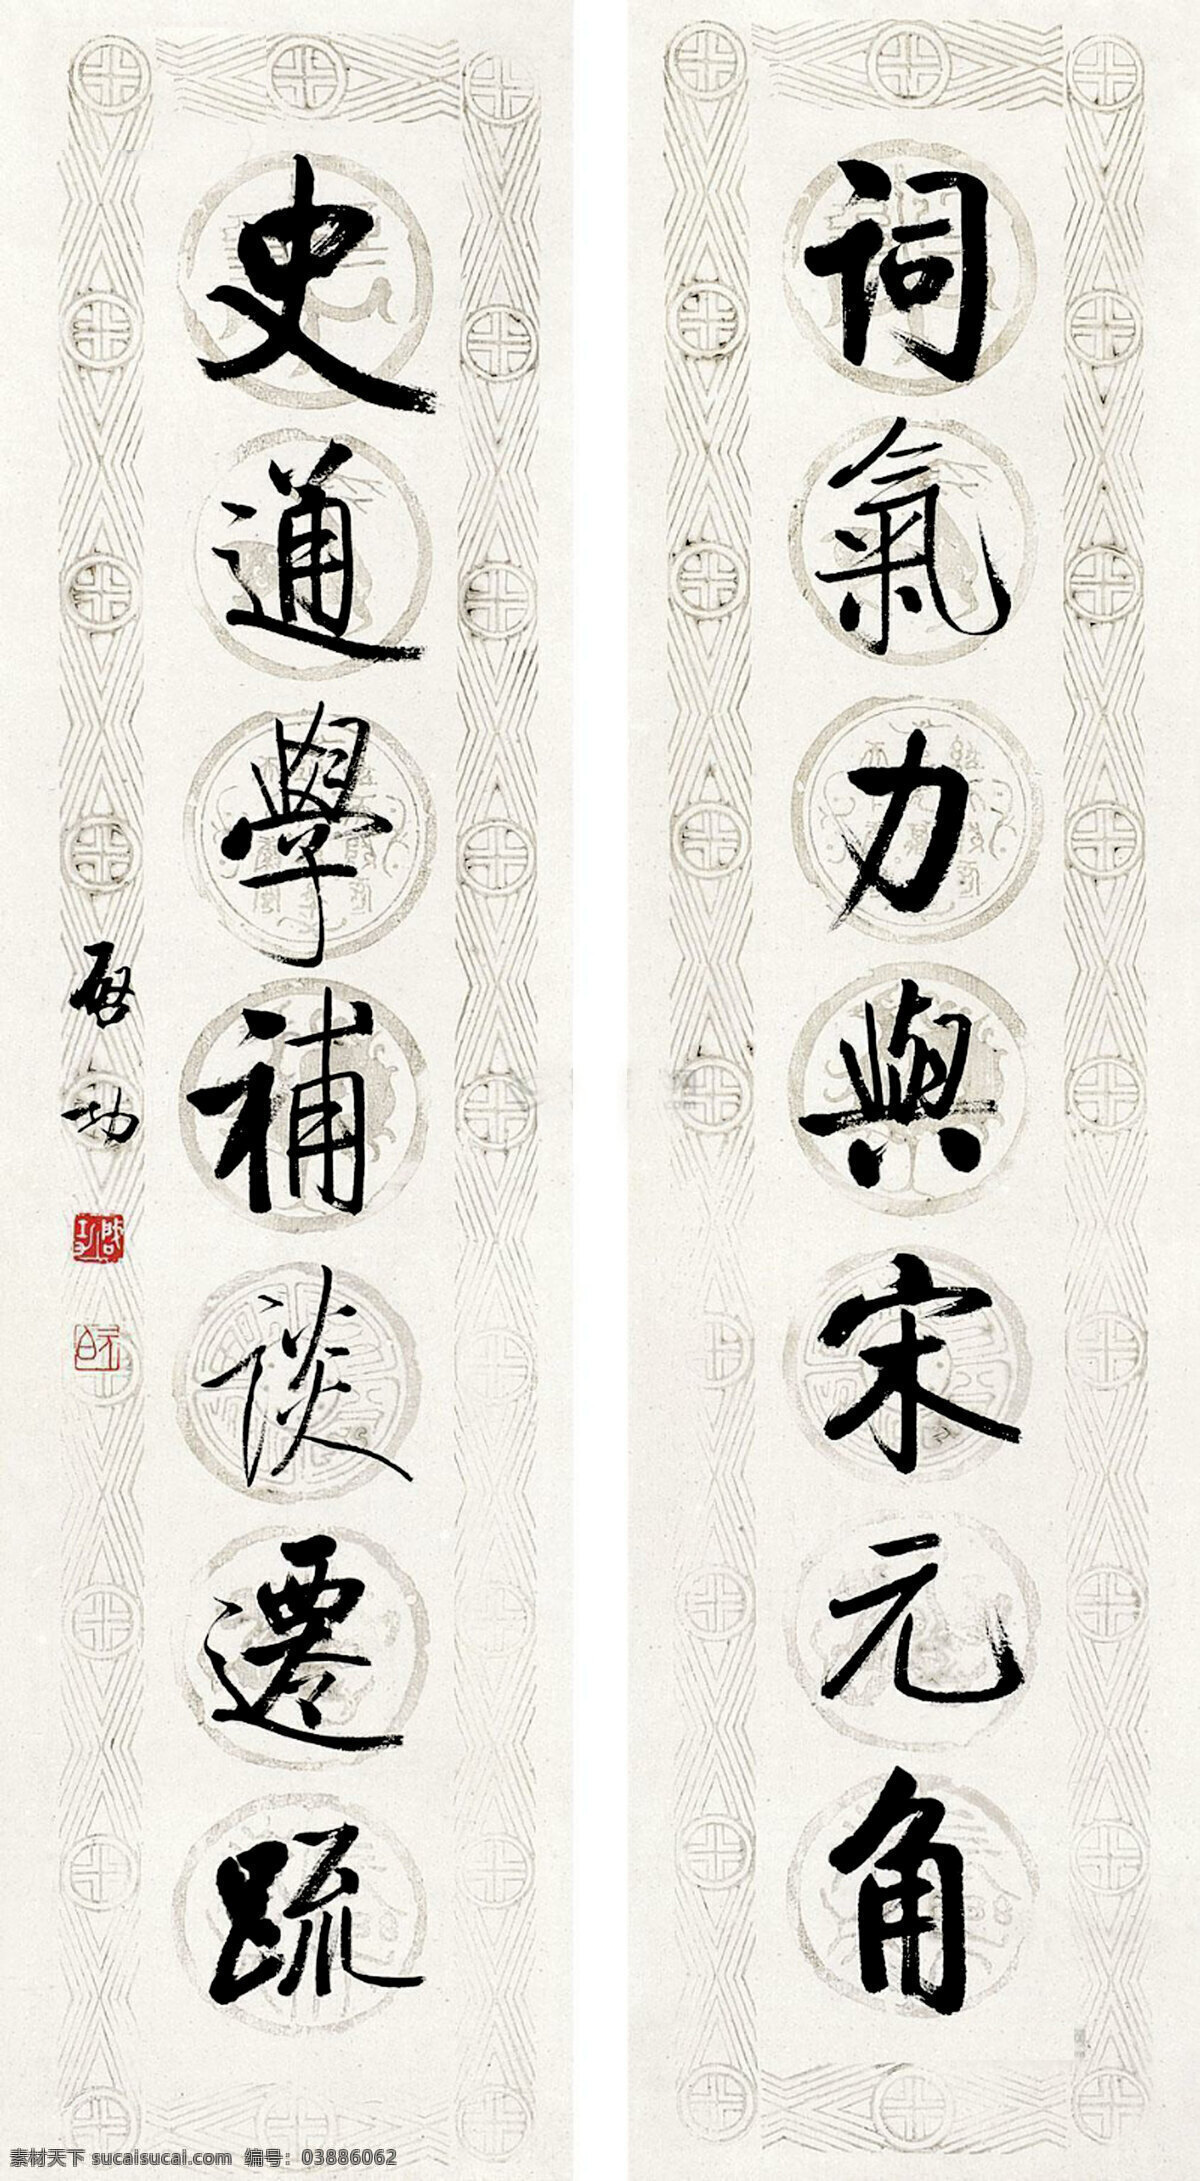 詞氣力與宋元角
史通學補談遷疏
啟功
素材天下 sucaisucai.com 编号：03886062